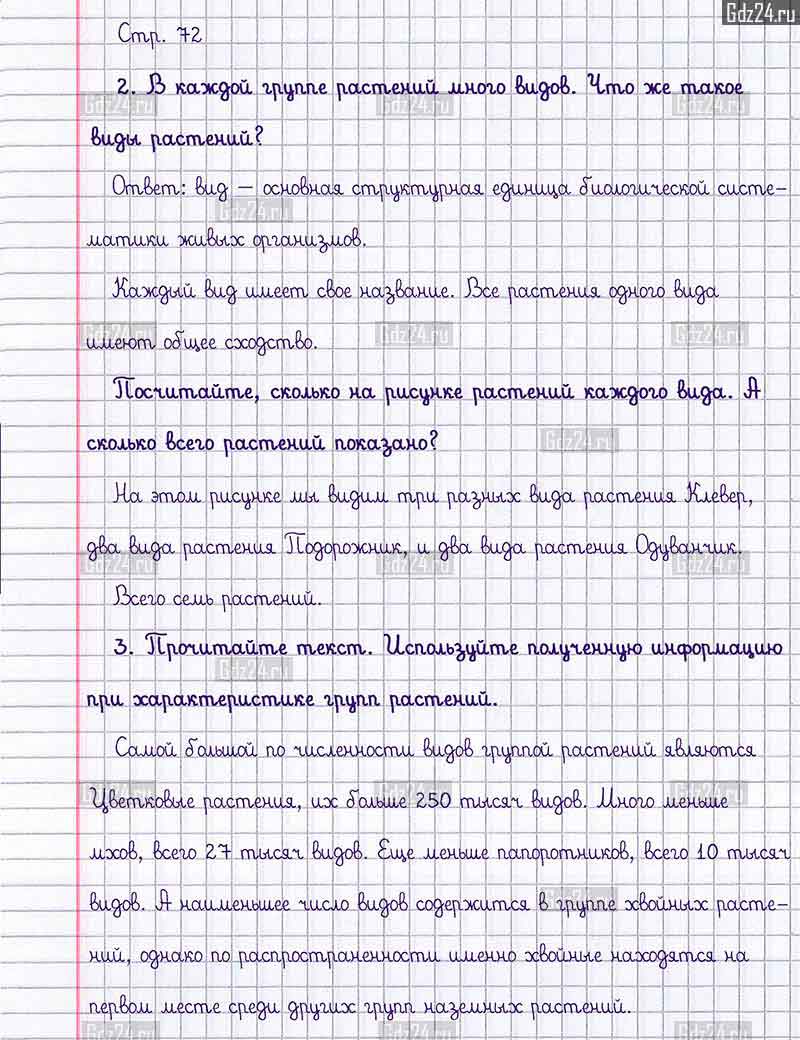 Gdz24.ru
Стр. 72
2. В каждой группе растений много видов. Что же такое
виды растений?
Ответ: вид – основная структурная единица биологической систе-
матики живых организмов.
Каждый вид имеет свое название. Все растения одного вида
имеют общее сходство.
Посчитайте, сколько на рисунке растений каждого вида. А
сколько всего растений показано?
На этом рисунке мы видим три разных вида растения Клевер,
два вида растения Подорожник, и два вида растения Одуванчик.
Всего семь растений.
3. Прочитайте текст. Используйте полученную информацию
при характеристике групп растений.
Самой большой по численности видов группой растений являются
Цветковые растения, их больше 250 тысяч видов. Много меньше
мхов, всего 27 тысяч видов. Еще меньше папоротников, всего 10 тысяч
видов. А наименьшее число видов содержится в группе хвойных расте-
ний, однако по распространенности именно хвойные находятся на
первом месте среди других групп наземных растений.